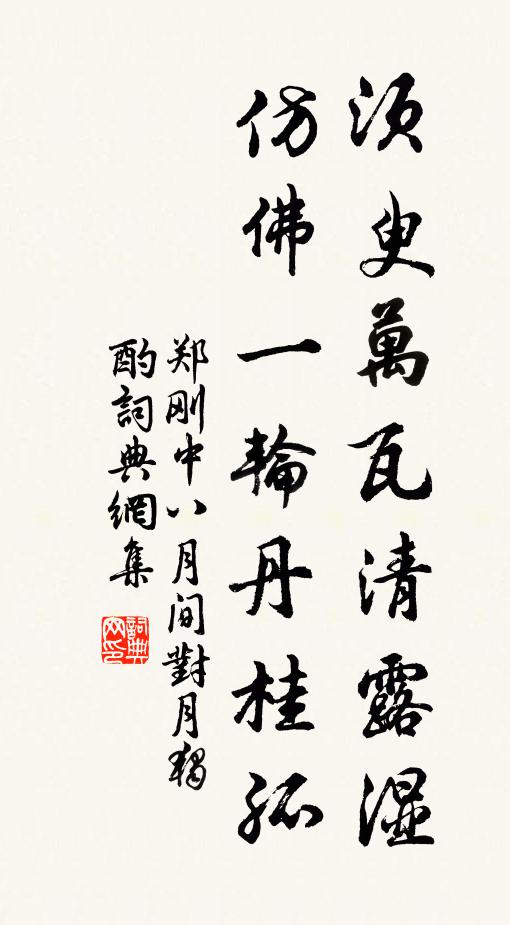 须臾萬瓦清露湿
仿佛一輪丹桂孤
郑刚中八月间對月獨
酌詞典網集
詞典网印